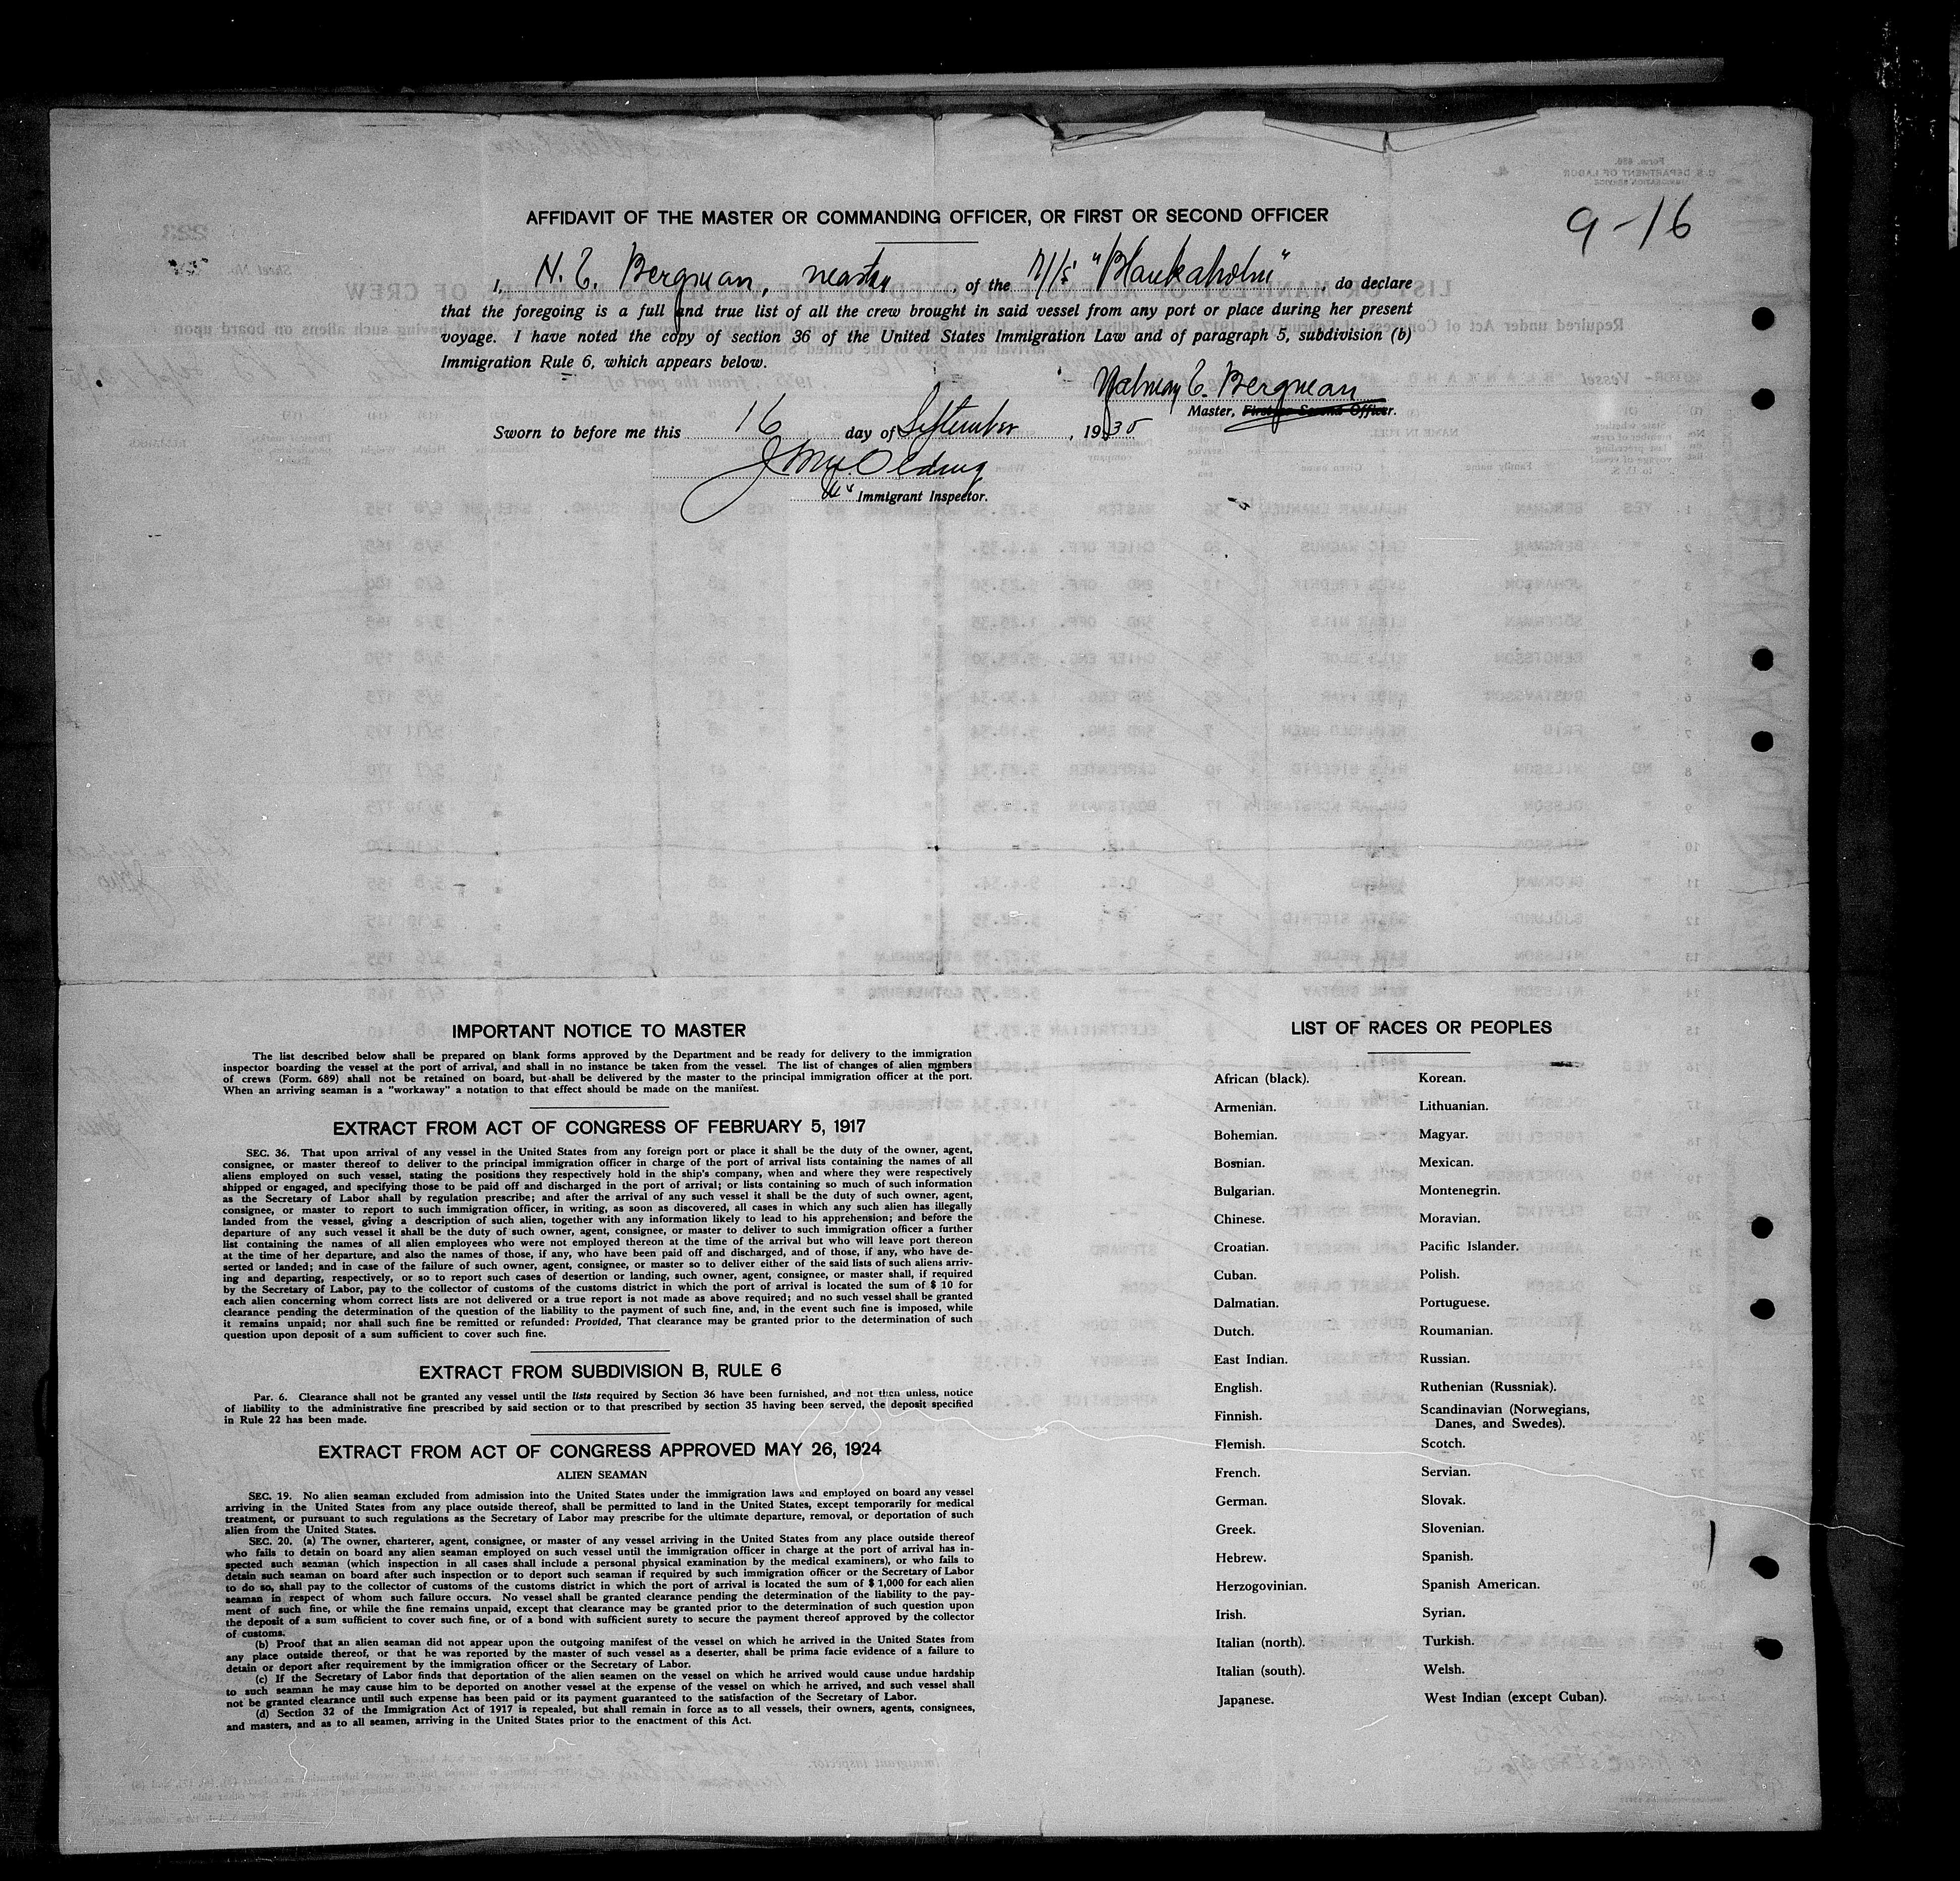 9-16
AFFIDAVIT OF THE MASTER OR COMMANDING OFFICER, OR FIRST OR SECOND OFFICER
I, H. E. Bergman, master, of the M/S "Blankaholm", do declare
that the foregoing is a full and true list of all the crew brought in said vessel from any port or place during her present
voyage. I have noted the copy of section 36 of the United States Immigration Law and of paragraph 5, subdivision (b)
Immigration Rule 6, which appears below.
Hjalmar E. Bergman
Master, First or Second Officer.
Sworn to before me this 16 day of September, 1935
Olding
Immigrant Inspector.
IMPORTANT NOTICE TO MASTER
The list described below shall be prepared on blank forms approved by the Department and be ready for delivery to the immigration
inspector boarding the vessel at the port of arrival, and shall in no instance be taken from the vessel. The list of changes of alien members
of crews (Form. 689) shall not be retained on board, but shall be delivered by the master to the principal immigration officer at the port.
When an arriving seaman is a "workaway" a notation to that effect should be made on the manifest.
EXTRACT FROM ACT OF CONGRESS OF FEBRUARY 5, 1917
SEC. 36. That upon arrival of any vessel in the United States from any foreign port or place it shall be the duty of the owner, agent,
consignee, or master thereof to deliver to the principal immigration officer in charge of the port of arrival lists containing the names of all
aliens employed on such vessel, stating the positions they respectively hold in the ship's company, when and where they were respectively
shipped or engaged, and specifying those to be paid off and discharged in the port of arrival; or lists containing so much of such information
as the Secretary of Labor shall by regulation prescribe; and after the arrival of any such vessel it shall be the duty of such owner, agent,
consignee, or master to report to such immigration officer, in writing, as soon as discovered, all cases in which any such alien has illegally
landed from the vessel, giving a description of such alien, together with any information likely to lead to his apprehension; and before the
departure of any such vessel it shall be the duty of such owner, agent, consignee, or master to deliver to such immigration officer a further
list containing the names of all alien employees who were not employed thereon at the time of the arrival but who will leave port thereon
at the time of her departure, and also the names of those, if any, who have been paid off and discharged, and of those, if any, who have de-
serted or landed; and in case of the failure of such owner, agent, consignee, or master so to deliver either of the said lists of such aliens arriv-
ing and departing, respectively, or so to report such cases of desertion or landing, such owner, agent, consignee, or master shall, if required
by the Secretary of Labor, pay to the collector of customs of the customs district in which the port of arrival is located the sum of $ 10 for
each alien concerning whom correct lists are not delivered or a true report is not made as above required; and no such vessel shall be granted
clearance pending the determination of the question of the liability to the payment of such fine, and, in the event such fine is imposed, while
it remains unpaid; nor shall such fine be remitted or refunded: Provided, That clearance may be granted prior to the determination of such
question upon deposit of a sum sufficient to cover such fine.
EXTRACT FROM SUBDIVISION B, RULE 6
Par. 6. Clearance shall not be granted any vessel until the lists required by Section 36 have been furnished, and not then unless, notice
of liability to the administrative fine prescribed by said section or to that prescribed by section 35 having been served, the deposit specified
in Rule 22 has been made.
EXTRACT FROM ACT OF CONGRESS APPROVED MAY 26, 1924
ALIEN SEAMAN
SEC. 19. No alien seaman excluded from admission into the United States under the immigration laws and employed on board any vessel
arriving in the United States from any place outside thereof, shall be permitted to land in the United States, except temporarily for medical
treatment, or pursuant to such regulations as the Secretary of Labor may prescribe for the ultimate departure, removal, or deportation of such
alien from the United States.
SEC. 20. (a) The owner, charterer, agent, consignee, or master of any vessel arriving in the United States from any place outside thereof
who fails to detain on board any alien seaman employed on such vessel until the immigration officer in charge at the port of arrival has in-
spected such seaman (which inspection in all cases shall include a personal physical examination by the medical examiners), or who fails to
detain such seaman on board after such inspection or to deport such seaman if required by such immigration officer or the Secretary of Labor
to do so, shall pay to the collector of customs of the customs district in which the port of arrival is located the sum of $ 1,000 for each alien
seaman in respect of whom such failure occurs. No vessel shall be granted clearance pending the determination of the liability to the pay-
ment of such fine, or while the fine remains unpaid, except that clearance may be granted prior to the determination of such question upon
the deposit of a sum sufficient to cover such fine, or of a bond with sufficient surety to secure the payment thereof approved by the collector
of customs.
(b) Proof that an alien seaman did not appear upon the outgoing manifest of the vessel on which he arrived in the United States from
any place outside thereof, or that he was reported by the master of such vessel as a deserter, shall be prima facie evidence of a failure to
detain or deport after requirement by the immigration officer or the Secretary of Labor.
(c) If the Secretary of Labor finds that deportation of the alien seamen on the vessel on which he arrived would cause undue hardship
to such seaman he may cause him to be deported on another vessel at the expense of the vessel on which he arrived, and such vessel shall
not be granted clearance until such expense has been paid or its payment guaranteed to the satisfaction of the Secretary of Labor.
(d) Section 32 of the Immigration Act of 1917 is repealed, but shall remain in force as to all vessels, their owners, agents, consignees,
and masters, and as to all seamen, arriving in the United States prior to the enactment of this Act.
LIST OF RACES OR PEOPLES
African (black).
Armenian.
Bohemian.
Bosnian.
Bulgarian.
Chinese.
Croatian.
Cuban.
Dalmatian.
Dutch.
East Indian.
English.
Finnish.
Flemish.
French.
German.
Greek.
Hebrew.
Herzogovinian.
Irish.
Italian (north).
Italian (south).
Japanese.
Korean.
Lithuanian.
Magyar.
Mexican.
Montenegrin.
Moravian.
Pacific Islander.
Polish.
Portuguese.
Roumanian.
Russian.
Ruthenian (Russniak).
Scandinavian (Norwegians,
Danes, and Swedes).
Scotch.
Servian.
Slovak.
Slovenian.
Spanish.
Spanish American.
Syrian.
Turkish.
Welsh.
West Indian (except Cuban).